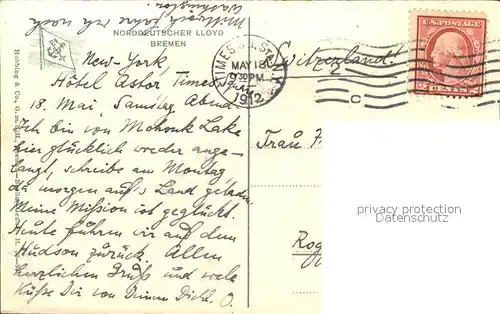 Mittwoch fahre ich nach
Washington.
NORDDEUTSCHER LLOYD
BREMEN
New-York,
Hôtel Astor Times
18. Mai, Samstag Abend
Ich bin von Mohonk Lake
hier glücklich wieder ange-
langt, schreibe am Montag
da morgen auf's Land geladen
Meine Mission ist geglückt.
Heute fuhren wir auf dem
Hudson zurück. Allen
herzlichen Gruß und viele
Küsse Dir von Deinem Dich l. O.
TIMES SQ. STA. N.Y.
MAY 18
9 30 PM
1912
C
U.S. POSTAGE
2 CENTS 2
Switzerland!
Frau F
Rog
privacy protection
Datenschutz